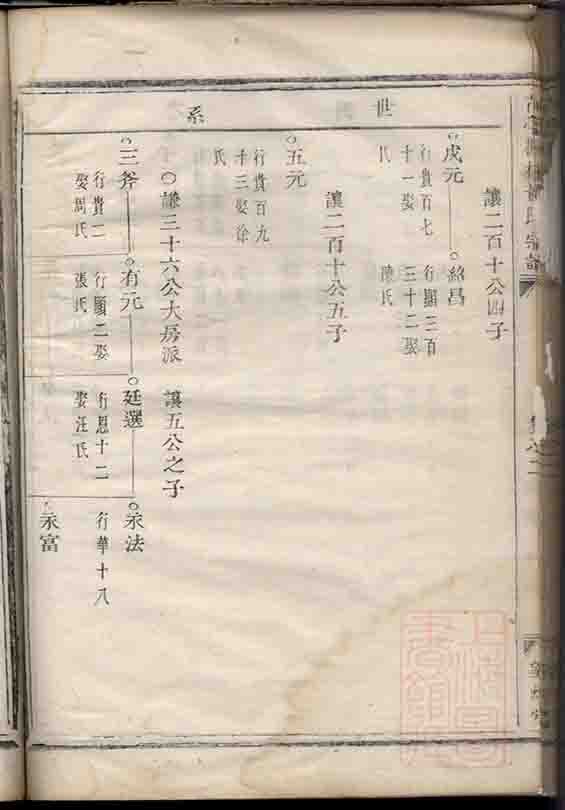 世系
讓二百十公四子
戍元
行貴百七
十一娶
氏
紹昌
行顯二百
三十二娶
陳氏
讓二百十公五子
五元
行貴百九
十三娶徐
氏
謙三十六公大房派 讓五公之子
三斧
行貴二
娶周氏
有元
行顯二娶
張氏
廷選
行恩十二
娶汪氏
永法
行華十八
永富
上海圖
書館藏